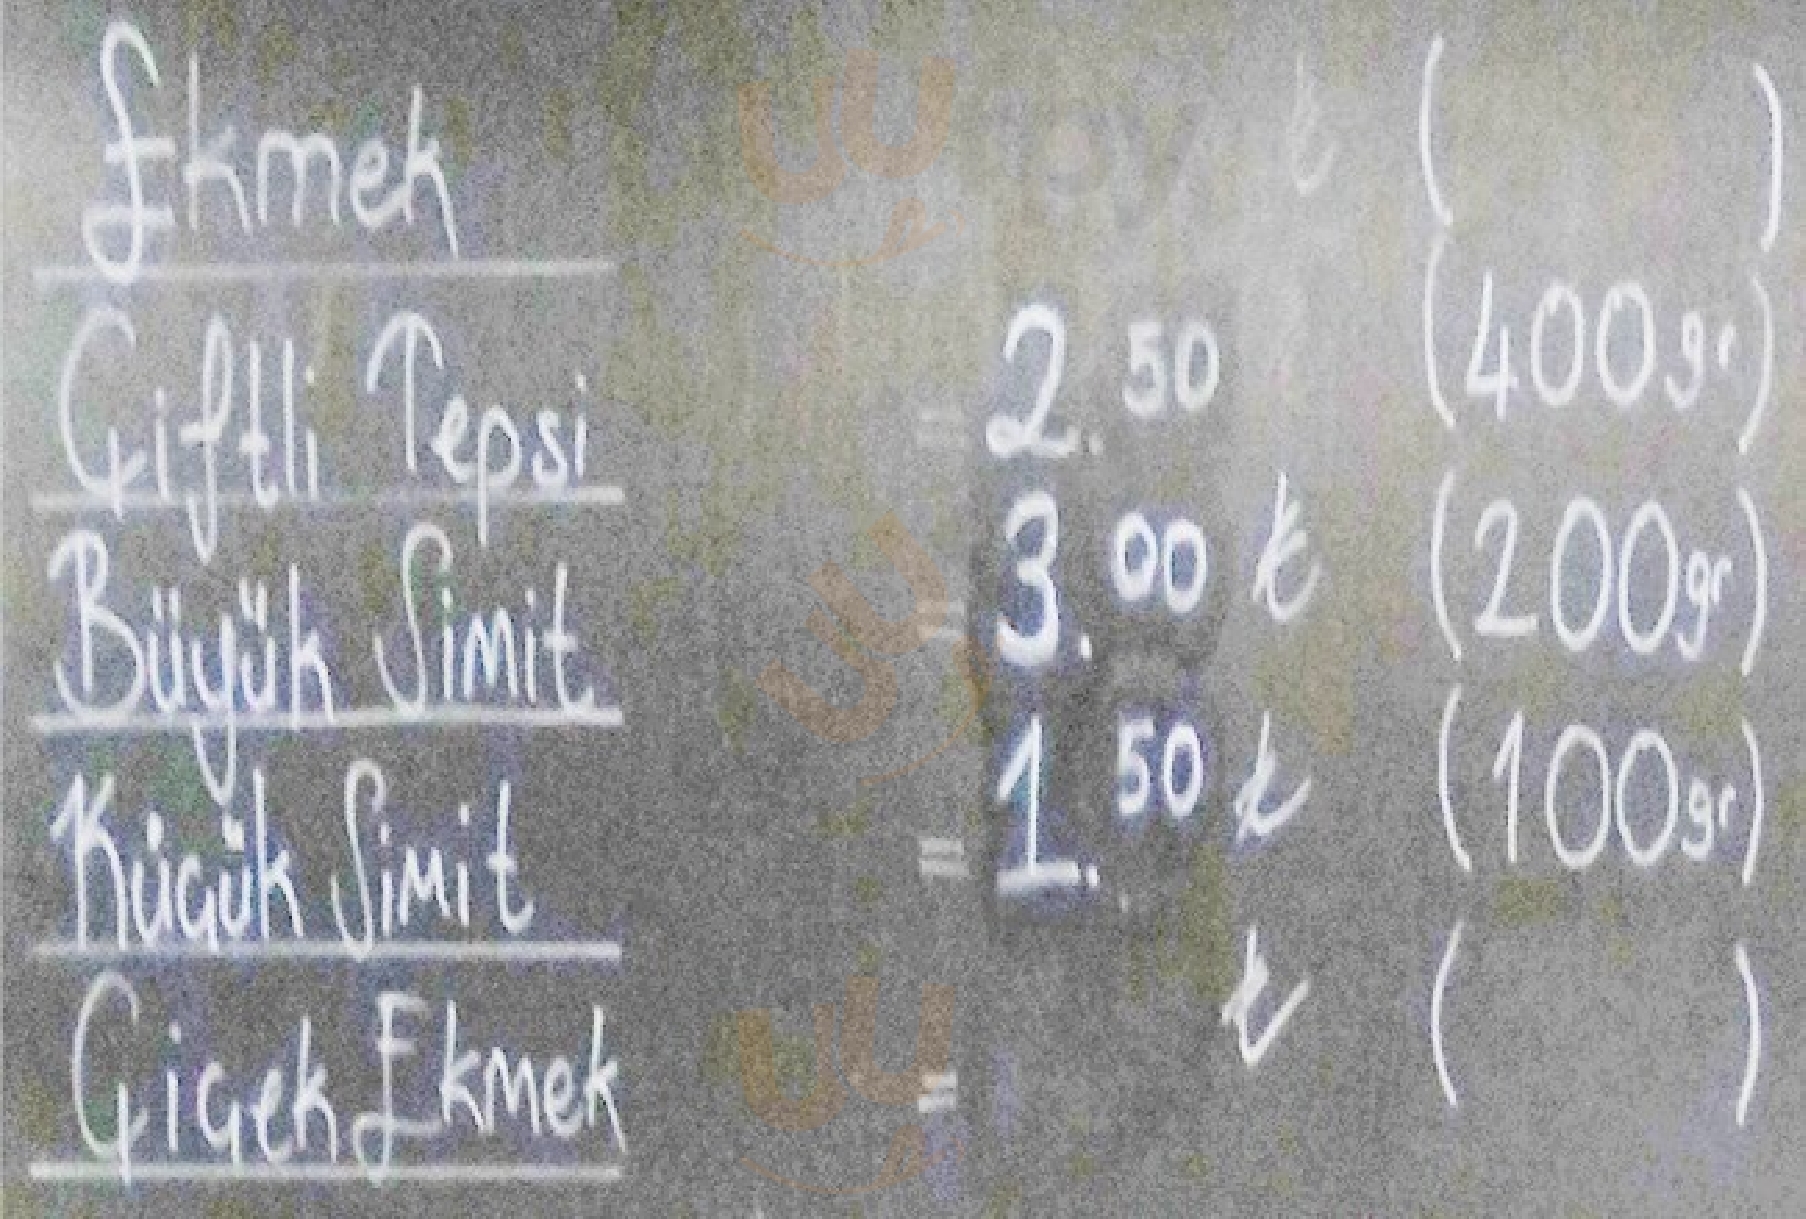 Ekmek ₺ ( )
Çiftli Tepsi = 2.50 (400gr)
Büyük Simit = 3.00 ₺ (200gr)
Küçük Simit = 1.50 ₺ (100gr)
Çiçek Ekmek = ₺ ( )